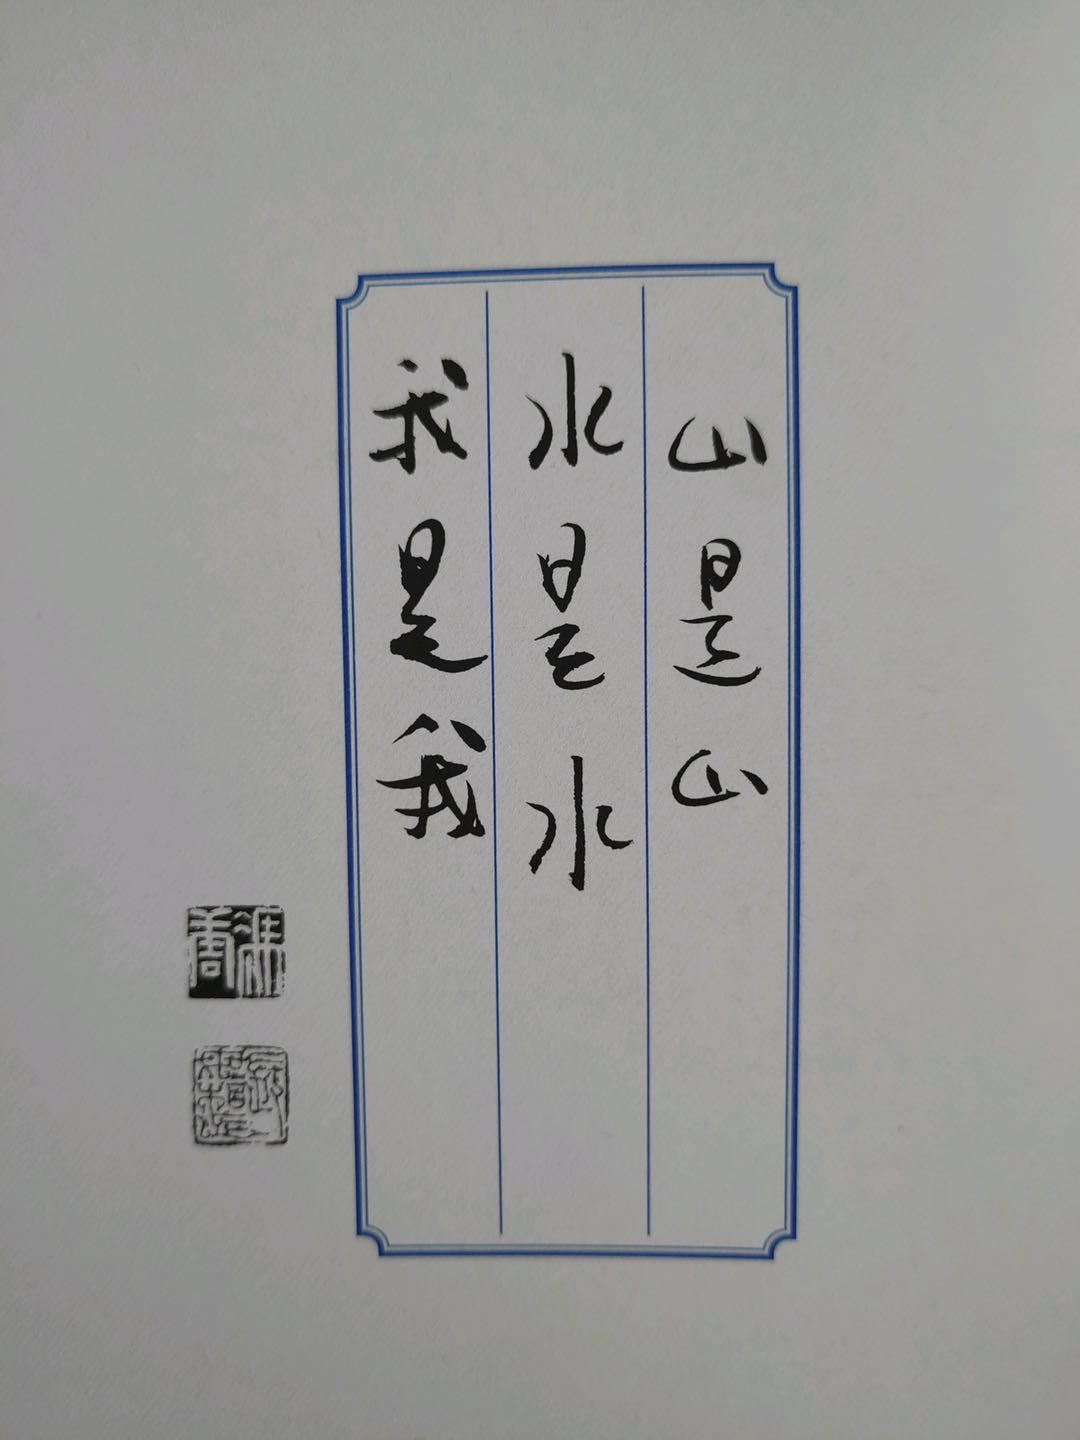 山是山
水是水
我是我